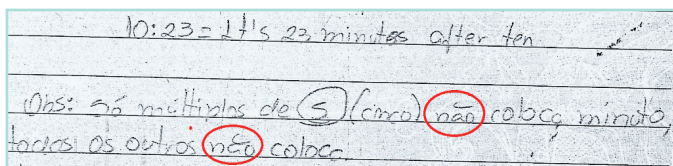 10:23 = It's 23 minutes after ten
Obs: só múltiplos de 5 (cinco) não coloca minuto,
todos os outros não coloca.